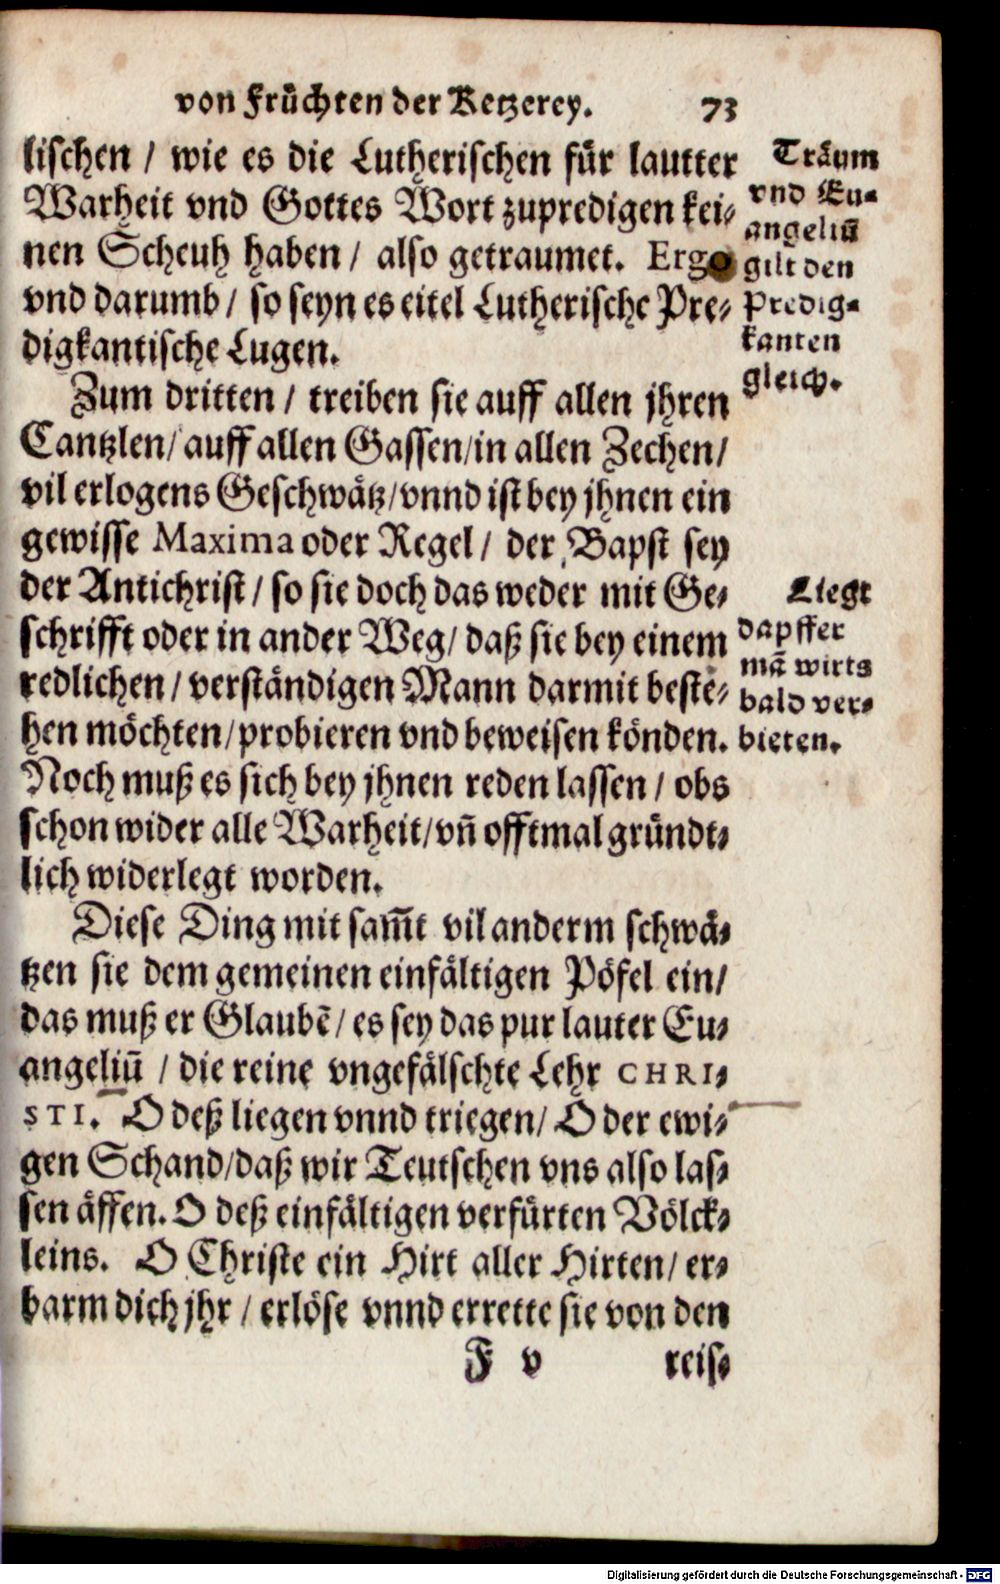 von Früchten der Ketzerey. 73
lischen / wie es die Lutherischen für lautter
Warheit vnd Gottes Wort zupredigen kei⸗
nen Scheuh haben / also getraumet. Ergo
vnd darumb / so seyn es eitel Lutherische Pre⸗
digkantische Lugen.
Träum
vnd Eu⸗
angeliū
gilt den
Predig⸗
kanten
gleich.
Zum dritten / treiben sie auff allen jhren
Cantzlen / auff allen Gassen / in allen Zechen /
vil erlogens Geschwätz / vnnd ist bey jhnen ein
gewisse Maxima oder Regel / der Bapst sey
der Antichrist / so sie doch das weder mit Ge⸗
schrifft oder in ander Weg / daß sie bey einem
redlichen / verständigen Mann darmit beste⸗
hen möchten / probieren vnd beweisen könden.
Noch muß es sich bey jhnen reden lassen / obs
schon wider alle Warheit / vn̄ offtmal gründt⸗
lich widerlegt worden.
Liegt
dapffer
mā wirts
bald ver⸗
bieten.
Diese Ding mit sam̄t vil anderm schwä⸗
tzen sie dem gemeinen einfältigen Pöfel ein /
das muß er Glaubē / es sey das pur lauter Eu⸗
angeliū / die reine vngefälschte Lehr CHRI⸗
STI. O deß liegen vnnd triegen / O der ewi⸗
gen Schand / daß wir Teutschen vns also las⸗
sen äffen. O deß einfältigen verfürten Völck⸗
leins. O Christe ein Hirt aller Hirten / er⸗
barm dich jhr / erlöse vnnd errette sie von den
F v reis⸗
Digitalisierung gefördert durch die Deutsche Forschungsgemeinschaft - DFG